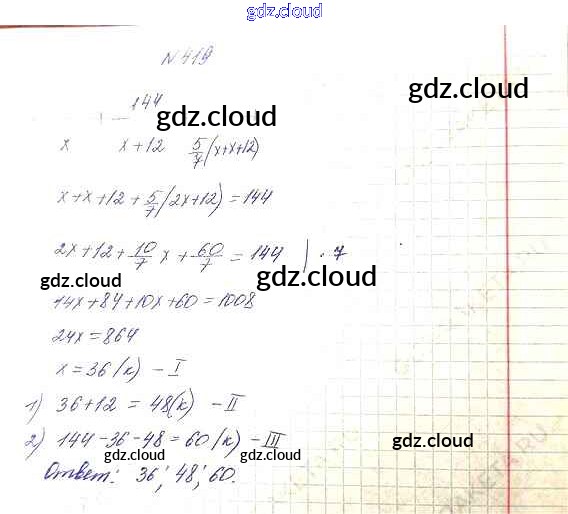 gdz.cloud
N 419
144
gdz.cloud gdz.cloud
x x+12 5/7(x+x+12)
gdz.cloud
x+x+12+5/7(2x+12)=144
2x+12+10/7x+60/7=144 | · 7
gdz.cloud gdz.cloud
14x+84+10x+60=1008
24x=864
x=36(к) – I
gdz.cloud
1) 36+12=48(к) – II
2) 144-36-48=60(к) – III
gdz.cloud gdz.cloud
Ответ: 36; 48; 60.